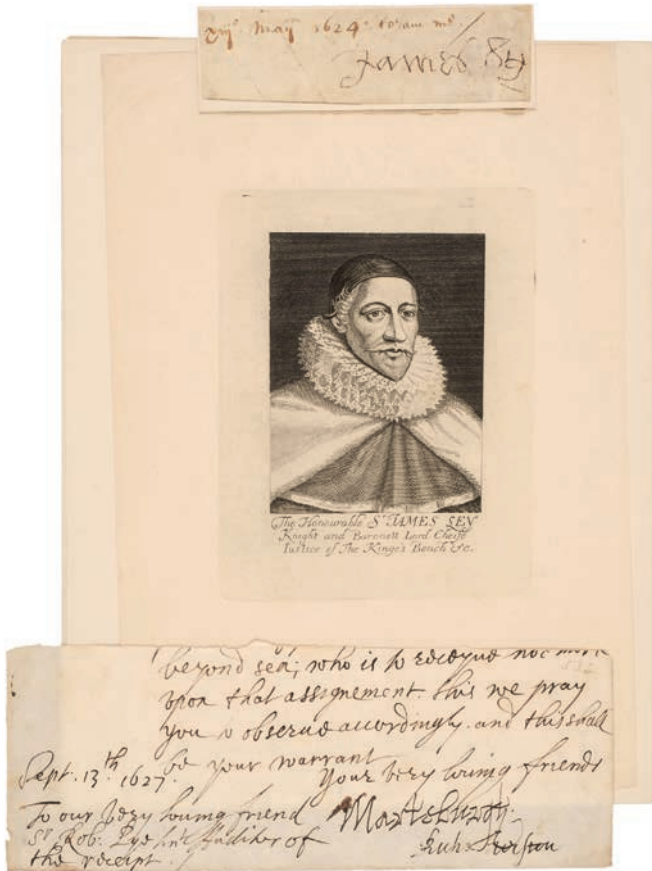 May 1624. coram me.
James Ley
The Honourable Sr. JAMES LEY
Knight and Baronett Lord Cheife
Iustice of The Kinges Bench &c.
beyond sea; who is to receyue not more
vpon that assignement. this we pray
you to obserue accordingly. and this shall
be your warrant
Sept. 13th. 1627.
Your very louing friends
To our very louing friend
Marleburgh.
Sr. Rob. Pye knt Auditor of
Rich:
the receipt.